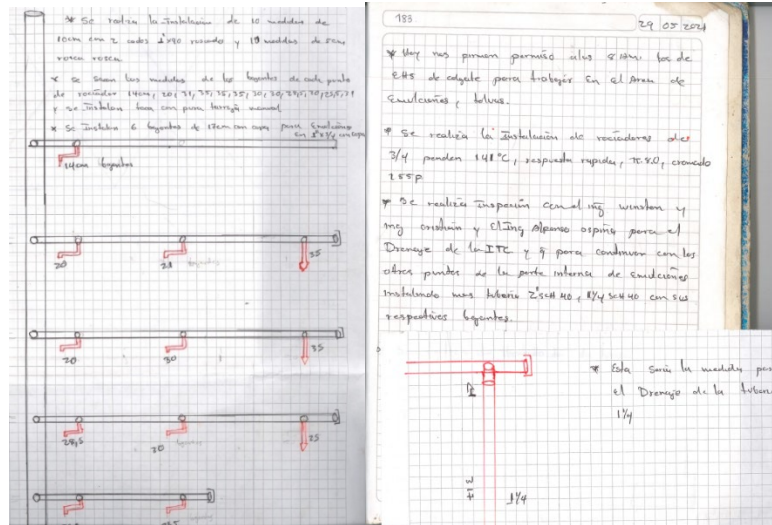 * Se realiza la Instalación de 10 medidas de
10cm con 2 codos 1"x90 roscado y 10 medidas de 5cm,
rosca rosca.
* Se sacan las medidas de los bajantes de cada punto
de rociador 14cm, 20, 21, 35, 35, 35, 30, 20, 28,5, 20, 25,5, 21
y se Instalan
* Se Instalan 6 bajantes de 17cm con copa para Emulciones
14cm bajantes
20
21 bajantes
35
20
30
35
28,5
20
25
183
29 05 2021
* Hoy nos firman permiso alas 8:10am los de
EHS de colgate para trabajar en el Area de
Emulciones, tolvas.
* Se realiza la Instalación de rociadores de:
3/4 penden 141°C, respuesta rapida, K.8.0, cromado
155P
* Se realiza inspeción con el ing winston y
ing cristhian y el Ing Alfonso ospina para el
Drenaje de la ITC y q para continuar con los
otros puntos de la parte interna de emulciones
instalando mas tuberia 2"sch 40, 1 1/4 sch 40 con sus
respectivos bajantes.
* Esta seria la medida par
el Drenaje de la tuber
1 1/4
1 1/4